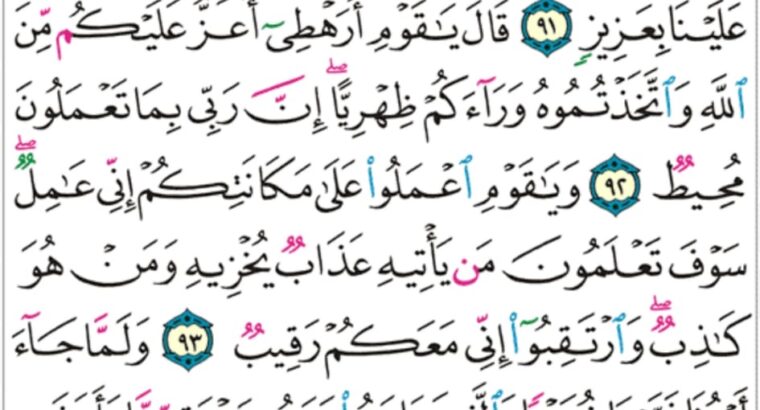 عَلَيْنَا بِعَزِيزٍ ٩١ قَالَ يَٰقَوْمِ أَرَهْطِىٓ أَعَزُّ عَلَيْكُم مِّنَ
ٱللَّهِ وَٱتَّخَذْتُمُوهُ وَرَآءَكُمْ ظِهْرِيًّا ۖ إِنَّ رَبِّى بِمَا تَعْمَلُونَ
مُحِيطٌ ٩٢ وَيَٰقَوْمِ ٱعْمَلُوا۟ عَلَىٰ مَكَانَتِكُمْ إِنِّى عَٰمِلٌ ۖ
سَوْفَ تَعْلَمُونَ مَن يَأْتِيهِ عَذَابٌ يُخْزِيهِ وَمَنْ هُوَ
كَٰذِبٌ ۖ وَٱرْتَقِبُوٓا۟ إِنِّى مَعَكُمْ رَقِيبٌ ٩٣ وَلَمَّا جَآءَ